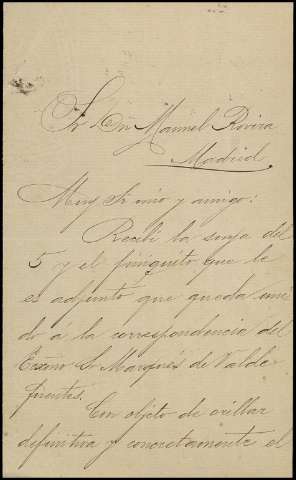 Sr Dn Manuel Rovira
Madrid
Muy Sr mio y amigo:
Recibí la suya del
5 y el finiquito que le
es adjunto que queda uni
do á la correspondencia del
Excmo Sr Marqués de Valde
fuentes.
Con objeto de orillar
definitiva y concretamente el